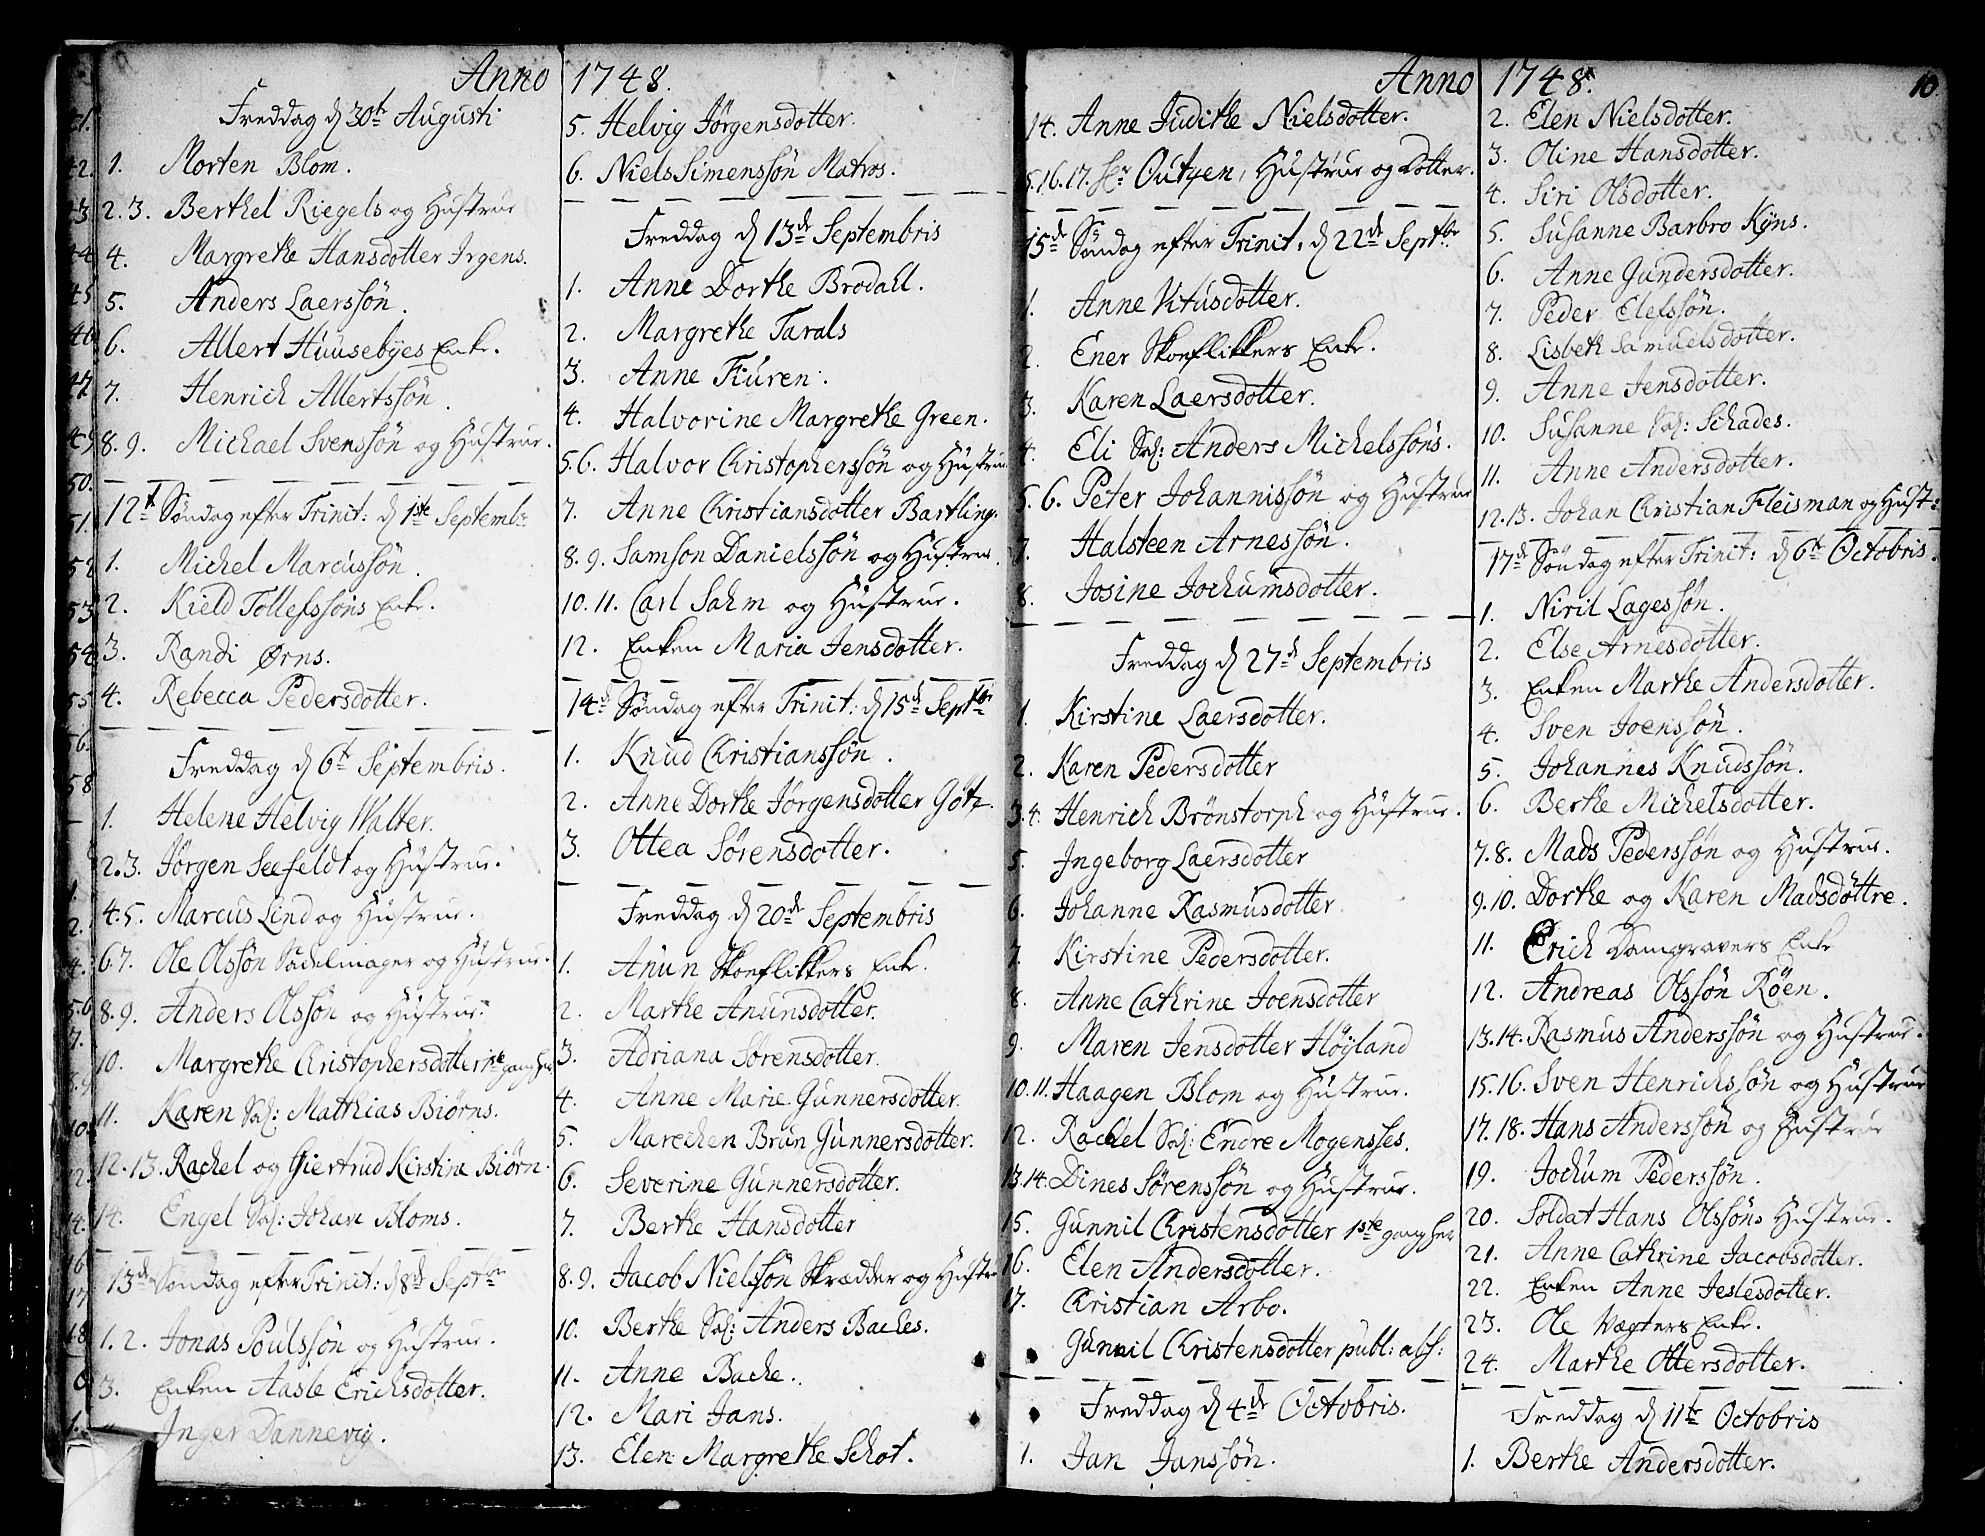 Anno 1748.
Freddag d 30t Augusti
1. Morten Blom.
2. 3. Berthel Riegels og Hustrue
4. Margrethe Hansdotter Irgens.
5. Anders Laerssön.
6. Allert Huusebyes Enke.
7. Henrich Allertssön.
8. 9. Michael Svenssön og Hustrue.
12t Söndag efter Trinit: d 1ste Septembr
1. Michel Marcussön.
2. Kield Tollefssöns Enke.
3. Randi Ørns.
4. Rebecca Pedersdotter.
Freddag d 6t Septembris.
1. Helene Helvig Walter.
2.3. Jörgen Seefeldt og Hustrue.
4.5. Marcus Lind og Hustrue.
6.7. Ole Olssön Sadelmager og Hustrue.
8. 9. Anders Olssön og Hustrue.
10. Margrethe Christophersdotter 1ste gang her
11. Karen Sal: Mathias Biørns.
12.13. Rachel og Giertrud Kirstine Biørn.
14. Engel Sal: Johan Bloms.
13de Söndag efter Trinit: d 8de Septbr
1. 2. Jonas Poulssön og Hustrue.
3. Enken Aasle Erichsdotter.
Inger Dannevig.
5. Helvig Jörgensdotter.
6. Niels Simenssön Matros.
Freddag d 13de Septembris
1. Anne Dorthe Brodahl.
2. Margrethe Tarals
3. Anne Fiuren.
4. Halvorine Margrethe Green.
5.6. Halvor Christopherssön og Hustrue
7. Anne Christiansdotter Bartling.
8. 9. Samson Danielssön og Hustrue.
10. 11. Carl Sahm og Hustrue.
12. Enken Maria Jensdotter.
14de Söndag efter Trinit: d 15de Septbr
1. Knud Christianssön.
2. Anne Dorthe Jörgensdotter Götz.
3. Ottea Sörensdotter.
Freddag d 20de Septembris
1. Anun Skoeflikkers Enke.
2. Marthe Anunsdotter.
3. Adriana Sörensdotter.
4. Anne Marie Gunnersdotter.
5. Marechen Brun Gunnersdotter.
6. Severine Gunnersdotter.
7. Berthe Hansdotter
8. 9. Jacob Nielssön Skrædder og Hustrue
10. Berthe Sal: Anders Baches.
11. Anne Bache.
12. Mari Jans.
13. Elen Margrethe Schot.
Anno 1748. 10.
14. Anne Judithe Nielsdotter.
5.16.17. Sr Outzen, Hustrue og Dotter.
15de Söndag efter Trinit: d 22de Septbr
1. Anne Knusdotter.
2. Ener Skoeflikkers Enke.
3. Karen Laersdotter.
4. Eli Sal: Anders Michelssöns.
5. 6. Peter Johannissön og Hustrue
7. Halsteen Arnessön.
8. Josine Jochumsdotter.
Freddag d 27de Septembris
1. Kirstine Laersdotter.
2. Karen Pedersdotter
3.4. Henrich Brönstorph og Hustrue.
5. Ingeborg Laersdotter
6. Johanne Rasmusdotter
7. Kirstine Pedersdotter.
8. Anne Cathrine Joensdotter
9. Maren Jensdotter Höyland
10. 11. Haagen Blom og Hustrue.
12. Rachel Sal: Endre Mogensses.
13. 14. Dines Sörenssön og Hustrue.
15. Gunnil Christensdotter 1ste gang her
16. Elen Andersdotter.
17. Christian Arbo.
Gunnil Christensdotter publ: abs:
Freddag d 4de Octobris.
1. Jan Janssön.
2. Elen Nielsdotter.
3. Oline Hansdotter.
4. Siri Olsdotter.
5. Susanne Barbro Kyns.
6. Anne Gundersdotter.
7. Peder Elefssön.
8. Lisbeth Samuelsdotter.
9. Anne Jensdotter.
10. Susanne Sal: Schades.
11. Anne Andersdotter.
12.13. Johan Christian Fleisman og Hust:
17de Söndag efter Trinit: d 6t Octobris.
1. Niril Lagessön.
2. Else Arnesdotter.
3. Enken Marthe Andersdotter.
4. Sven Joenssön.
5. Johannes Knudssön.
6. Berthe Michelsdotter.
7.8. Mads Pederssön og Hustrue.
9.10. Dorthe og Karen Madsdöttre.
11. Erich Damgravers Enke
12. Andreas Olssön Röen.
13.14. Rasmus Anderssön og Hustrue.
15.16. Sven Henrichssön og Hustrue
17.18. Hans Anderssön og Hustrue
19. Jochum Pederssön.
20. Soldat Hans Olssöns Hustrue.
21. Anne Cathrine Jacobsdotter.
22. Enken Anne Jeslesdotter.
23. Ole Vægters Enke.
24. Marthe Ottersdotter.
Freddag d 11te Octobris
1. Berthe Andersdotter.